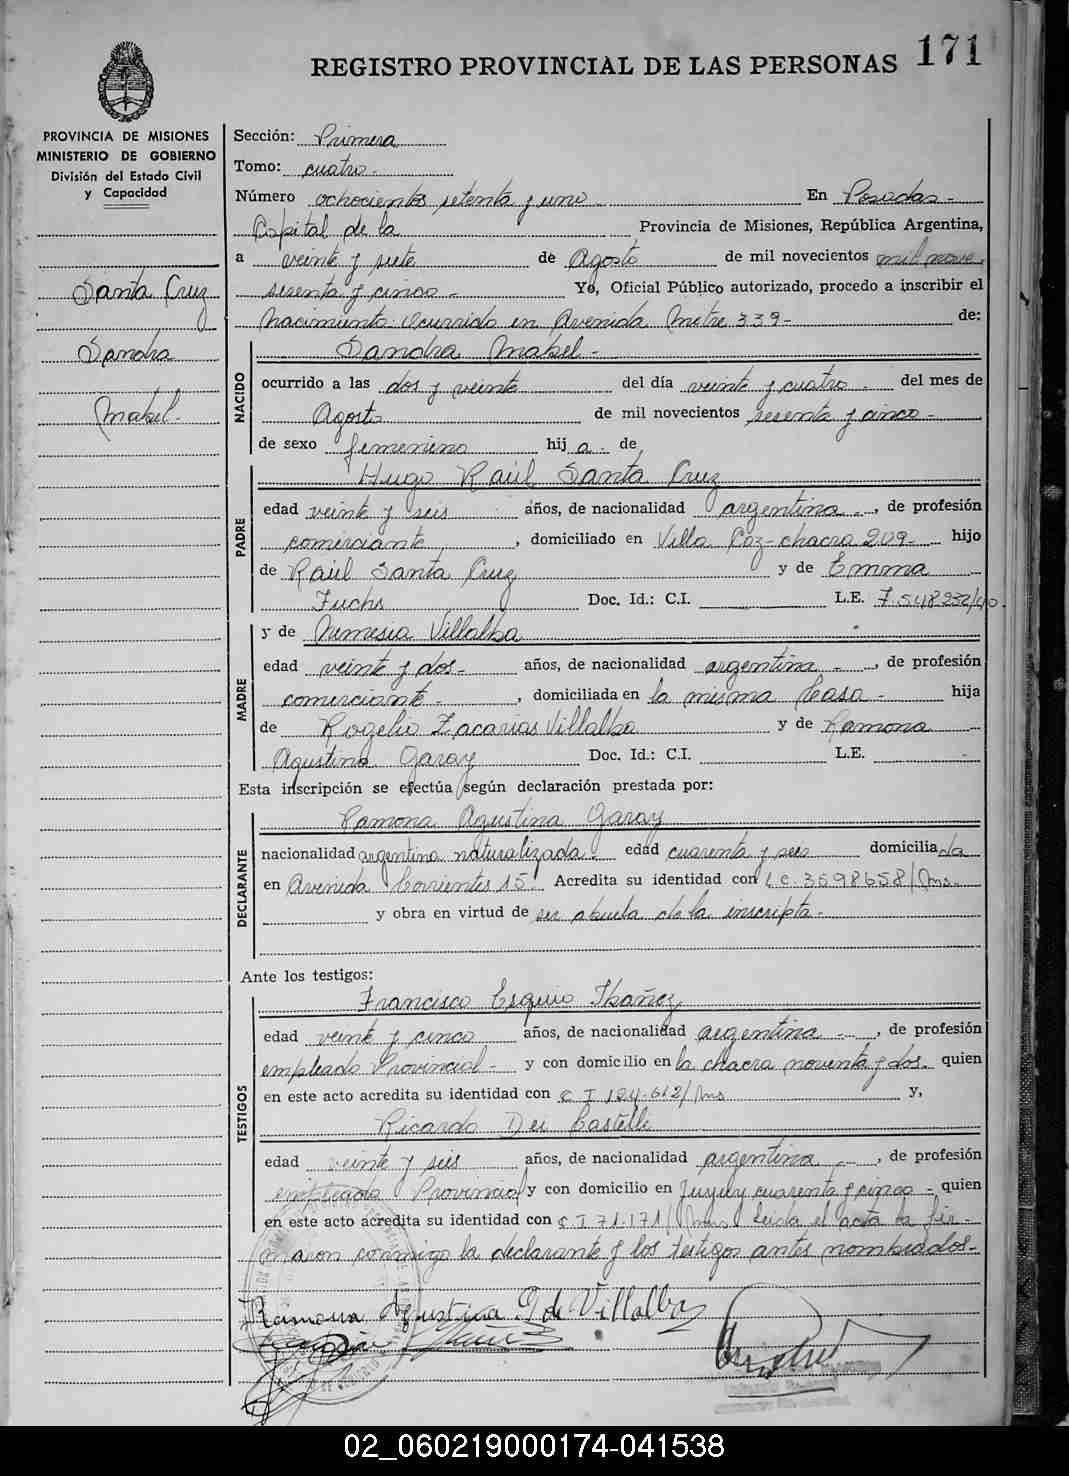 REGISTRO PROVINCIAL DE LAS PERSONAS 171
PROVINCIA DE MISIONES
MINISTERIO DE GOBIERNO
División del Estado Civil
y Capacidad
Santa Cruz
Sandra
Mabel.
Sección: Primera
Tomo: cuatro.
Número ochocientos setenta y uno En Posadas-
Capital de la Provincia de Misiones, República Argentina,
a veinte y siete de Agosto de mil novecientos mil nove.
sesenta y cinco - Yo, Oficial Público autorizado, procedo a inscribir el
nacimiento ocurrido en Avenida Mitre 339- de:
NACIDO
Sandra Mabel -
ocurrido a las dos y veinte del día veinte y cuatro. del mes de
Agosto de mil novecientos sesenta y cinco -
de sexo femenino hij a - de
PADRE
Hugo Raúl Santa Cruz
edad veinte y seis años, de nacionalidad argentina -, de profesión
comerciante, domiciliado en Villa Coz-chacra 209- hijo
de Raúl Santa Cruz y de Emma
Fuchs Doc. Id.: C.I. L.E. 7.548232/40.
MADRE
y de Nemesia Villalba
edad veinte y dos- años, de nacionalidad argentina -, de profesión
comerciante -, domiciliada en la misma Casa - hija
de Rogelio Zacarias Villalba y de Ramona
Agustina Garay Doc. Id.: C.I. L.E.
Esta inscripción se efectúa según declaración prestada por:
DECLARANTE
Ramona Agustina Garay
nacionalidad argentina naturalizada. edad cuarenta y seis domiciliada
en Avenida Corrientes 15. Acredita su identidad con L.C. 3598658/Mns.
y obra en virtud de ser abuela de la inscripta.
Ante los testigos:
TESTIGOS
Francisco Esquio Ibañez
edad veinte y cinco años, de nacionalidad argentina -, de profesión
empleado Provincial - y con domicilio en la chacra noventa y dos. quien
en este acto acredita su identidad con C I 124.612/Mns y,
Ricardo Dei Castelli
edad veinte y seis años, de nacionalidad argentina -, de profesión
empleado Provincial y con domicilio en Jujuy cuarenta y cinco - quien
en este acto acredita su identidad con C.I 71.171/Mns. Leida el acta la fir-
maron conmigo la declarante y los testigos antes nombrados-
Ramona Agustina G de Villalba
02_060219000174-041538